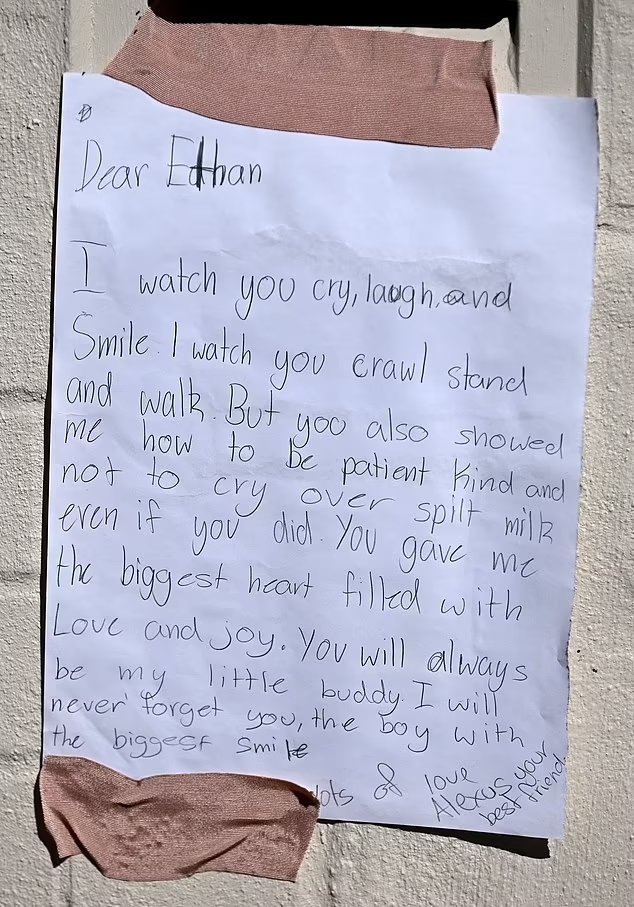 Dear Ethan
I watch you cry, laugh, and
Smile. I watch you crawl stand
and walk. But you also showed
me how to be patient kind and
not to cry over spilt milk
even if you did. You gave me
the biggest heart filled with
Love and joy. You will always
be my little buddy. I will
never forget you, the boy with
the biggest smile
lots of love
Alexus your
best friend.